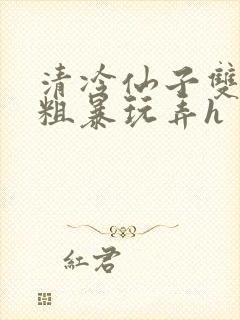 清冷仙子雙
粗暴玩弄h
紅君